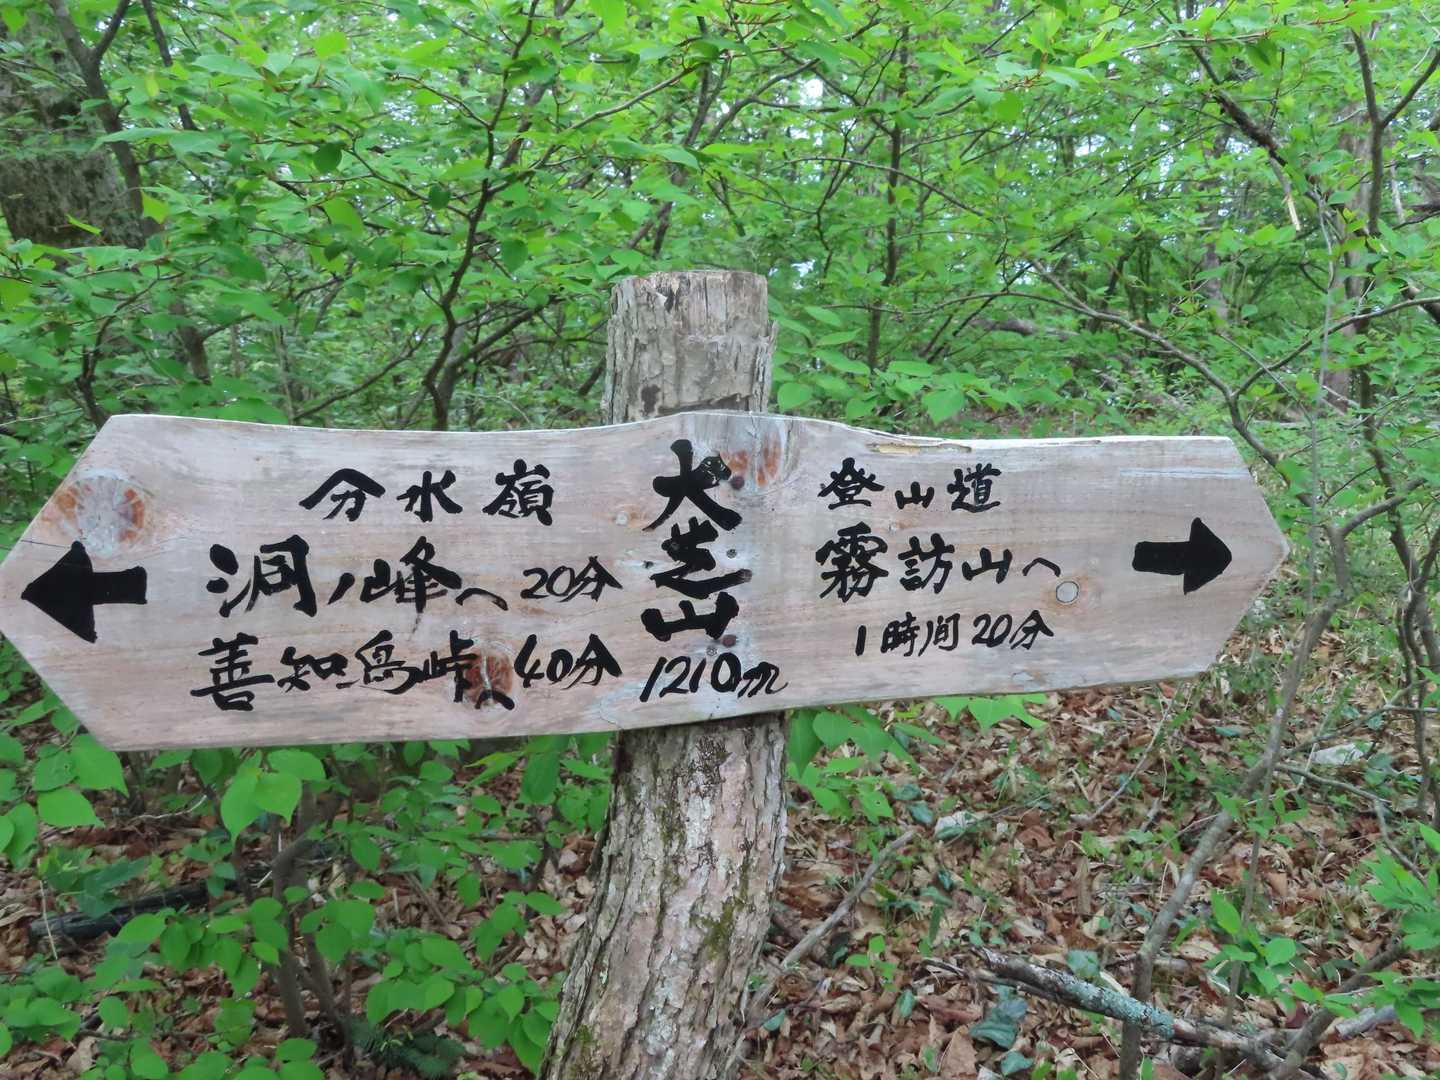 分水嶺
洞ノ峰へ 20分
善知鳥峠へ 40分
大芝山
1210m
登山道
霧訪山へ
1時間20分